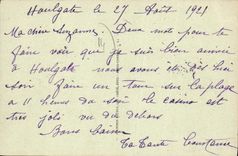 Houlgate le 27 Août 1921
Ma chère Suzanne. Deux mot pour te
faire voir que je suis bien arrivée
à Houlgate nous avons été dès hier
soir faire un tour sur la plage
à 11 heures du soir le casino est
très joli vu du dehors
Bons baisers
Ta Tante